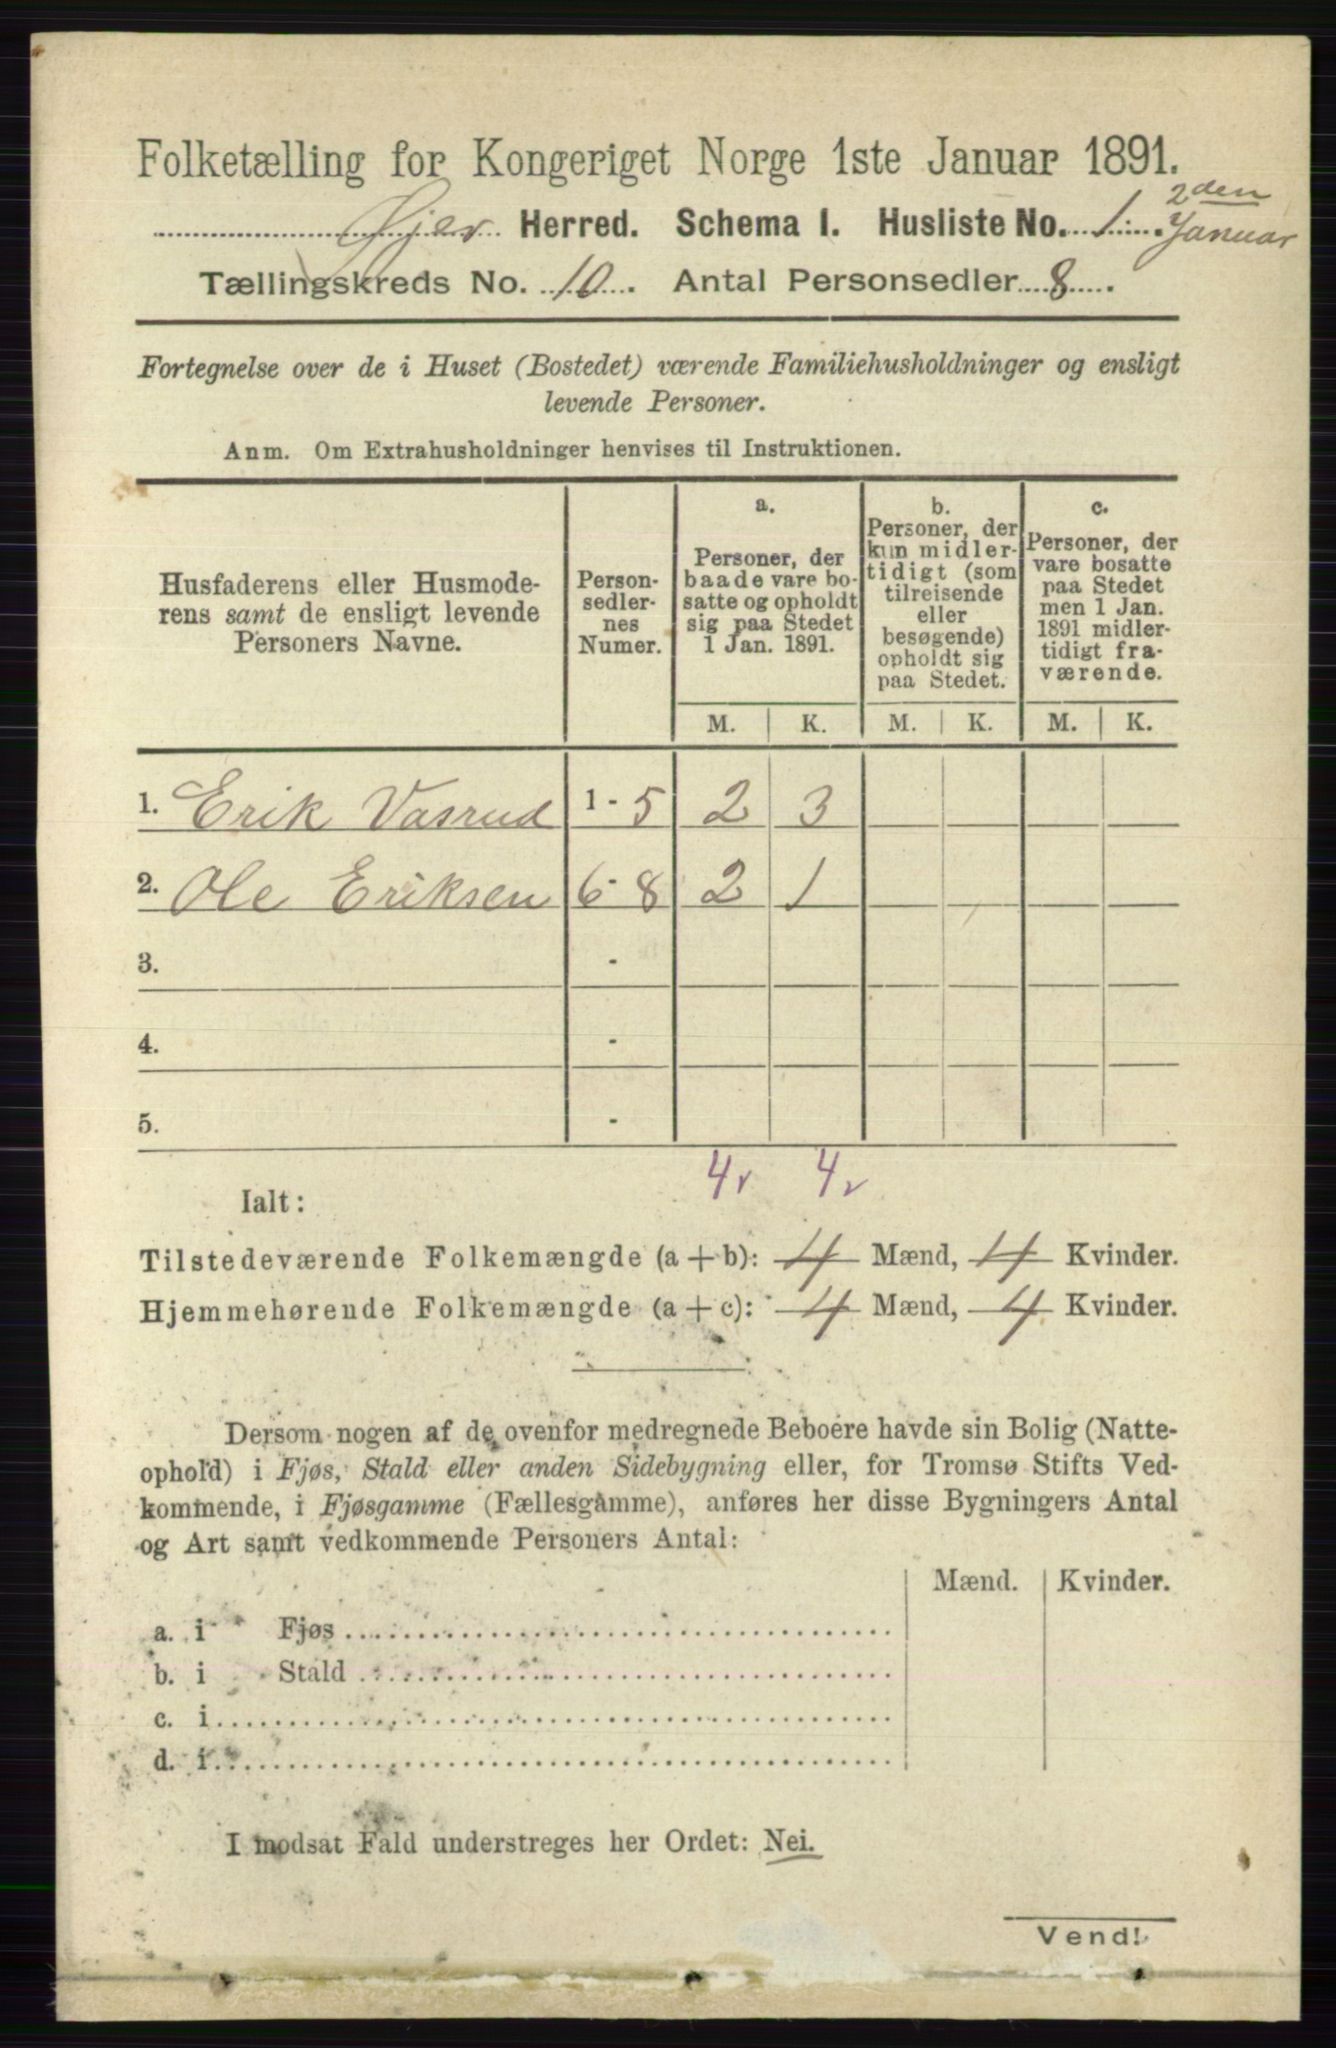 Folketælling for Kongeriget Norge 1ste Januar 1891.
Øjer Herred. Schema I. Husliste No. 1. 2den Januar
Tællingskreds No. 10. Antal Personsedler 8.
Fortegnelse over de i Huset (Bostedet) værende Familiehusholdninger og ensligt
levende Personer.
Anm. Om Extrahusholdninger henvises til Instruktionen.
Husfaderens eller Husmode-
rens samt de ensligt levende
Personers Navne.
Person-
sedler-
nes
Numer.
a.
Personer, der
baade vare bo-
satte og opholdt
sig paa Stedet
1 Jan. 1891.
b.
Personer, der
kun midler-
tidigt (som
tilreisende
eller
besøgende)
opholdt sig
paa Stedet.
c.
Personer, der
vare bosatte
paa Stedet
men 1 Jan.
1891 midler-
tidigt fra-
værende.
M. K. M. K. M. K.
1. Erik Vasrud 1 - 5 2 3
2. Ole Eriksen 6 - 8 2 1
3. -
4. -
5. -
4 4
Ialt:
Tilstedeværende Folkemængde (a + b): 4 Mænd, 4 Kvinder.
Hjemmehørende Folkemængde (a + c): 4 Mænd, 4 Kvinder.
Dersom nogen af de ovenfor medregnede Beboere havde sin Bolig (Natte-
ophold) i Fjøs, Stald eller anden Sidebygning eller, for Tromsø Stifts Ved-
kommende, i Fjøsgamme (Fællesgamme), anføres her disse Bygningers Antal
og Art samt vedkommende Personers Antal:
Mænd. Kvinder.
a. i Fjøs
b. i Stald
c. i
d. i
I modsat Fald understreges her Ordet: Nei.
Vend!